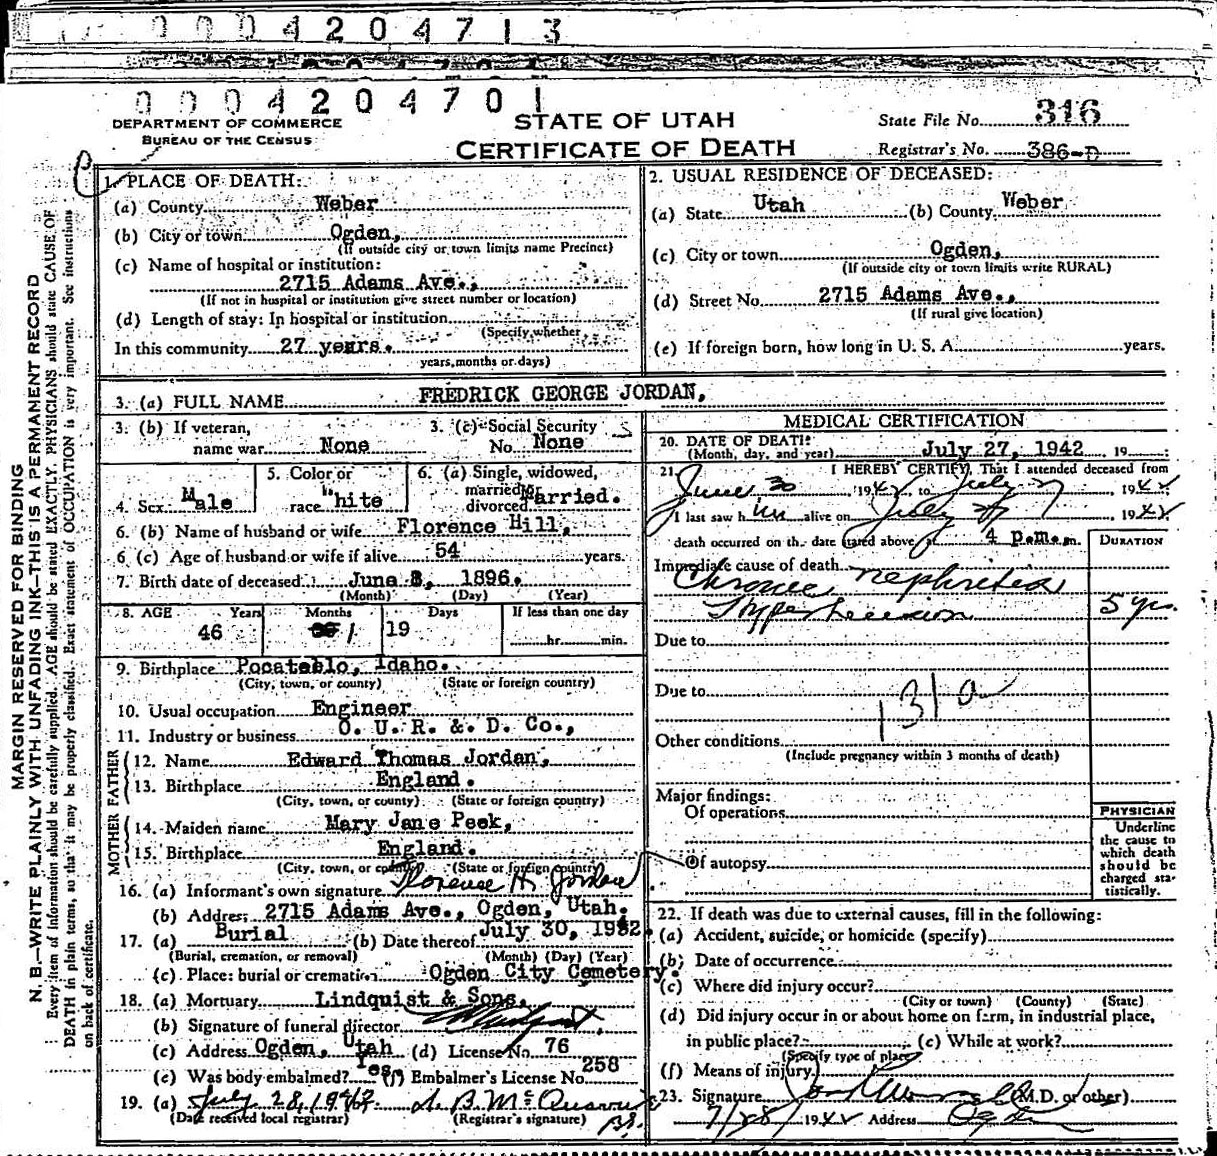 0004204713
0004204701
DEPARTMENT OF COMMERCE
BUREAU OF THE CENSUS
STATE OF UTAH
CERTIFICATE OF DEATH
State File No. 316
Registrar's No. 386-D
MARGIN RESERVED FOR BINDING
N. B.—WRITE PLAINLY WITH UNFADING INK—THIS IS A PERMANENT RECORD
Every item of information should be carefully supplied. AGE should be stated EXACTLY. PHYSICIANS should state CAUSE OF
DEATH in plain terms, so that it may be properly classified. Exact statement of OCCUPATION is very important. See instructions
on back of certificate.
1. PLACE OF DEATH:
(a) County Weber
(b) City or town Ogden,
(If outside city or town limits name Precinct)
(c) Name of hospital or institution:
2715 Adams Ave.,
(If not in hospital or institution give street number or location)
(d) Length of stay: In hospital or institution
(Specify whether
In this community 27 years.
years, months or days)
2. USUAL RESIDENCE OF DECEASED:
(a) State Utah (b) County Weber
(c) City or town Ogden,
(If outside city or town limits write RURAL)
(d) Street No. 2715 Adams Ave.,
(If rural give location)
(e) If foreign born, how long in U. S. A. years.
3. (a) FULL NAME FREDRICK GEORGE JORDAN,
3. (b) If veteran,
name war None
3. (c) Social Security
No. None
4. Sex Male
5. Color or
race White
6. (a) Single, widowed,
married,
divorced Married.
6. (b) Name of husband or wife Florence Hill,
6 (c) Age of husband or wife if alive 54 years.
7. Birth date of deceased June 8, 1896.
(Month) (Day) (Year)
8. AGE Years Months Days If less than one day
46 1 19 hr. min.
9. Birthplace Pocatello, Idaho.
(City, town, or county) (State or foreign country)
10. Usual occupation Engineer
11. Industry or business O. U. R. & D. Co.,
FATHER
12. Name Edward Thomas Jordan,
13. Birthplace England.
(City, town, or county) (State or foreign country)
MOTHER
14. Maiden name Mary Jane Peek,
15. Birthplace England.
(City, town, or county) (State or foreign country)
16. (a) Informant's own signature Florence H. Jordan
(b) Address 2715 Adams Ave., Ogden, Utah.
17. (a) Burial (b) Date thereof July 30, 1942.
(Burial, cremation, or removal) (Month) (Day) (Year)
(c) Place: burial or cremation Ogden City Cemetery.
18. (a) Mortuary Lindquist & Sons,
(b) Signature of funeral director
(c) Address Ogden, Utah (d) License No. 76
(e) Was body embalmed? Yes. (f) Embalmer's License No. 258
19. (a) July 28, 1942
(Date received local registrar) (Registrar's signature)
MEDICAL CERTIFICATION
20. DATE OF DEATH: July 27, 1942 19
(Month, day, and year)
21. I HEREBY CERTIFY, That I attended deceased from
June 30, 1942, to July 27, 1942
I last saw him alive on July 27, 1942
death occurred on the date stated above, at 4 p.m. m.
DURATION
Immediate cause of death
Chronic nephritis
Hypertension 5 yrs.
Due to
Due to
131a
Other conditions
(Include pregnancy within 3 months of death)
Major findings:
Of operations
Of autopsy
PHYSICIAN
Underline
the cause to
which death
should be
charged sta-
tistically.
22. If death was due to external causes, fill in the following:
(a) Accident, suicide, or homicide (specify)
(b) Date of occurrence
(c) Where did injury occur?
(City or town) (County) (State)
(d) Did injury occur in or about home on farm, in industrial place,
in public place? (e) While at work?
(Specify type of place)
(f) Means of injury
23. Signature (M.D. or other)
7/28 1942 Address Ogden